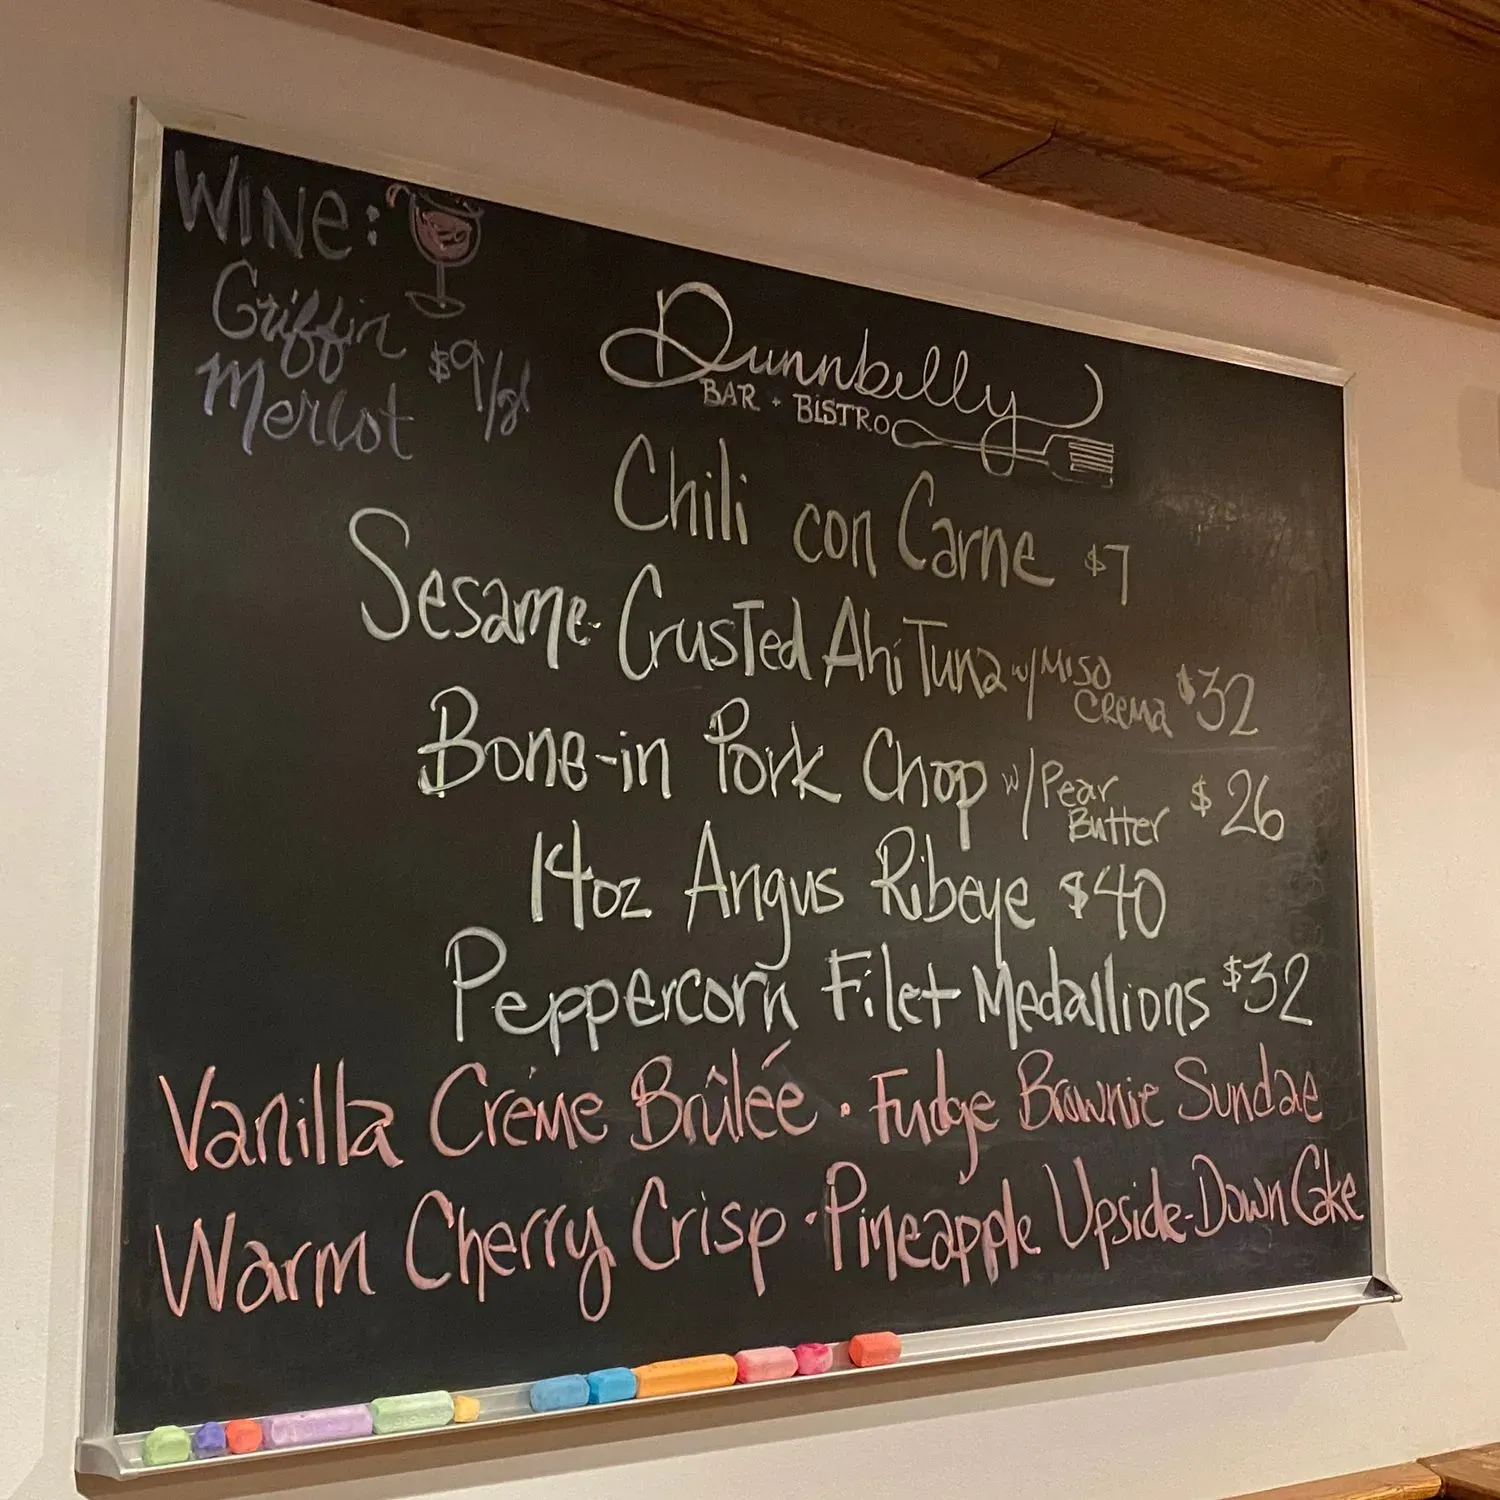 WINE:
Griffin
Merlot $9/gl
Dunnbelly
BAR + BISTRO
Chili con Carne $7
Sesame-Crusted Ahi Tuna w/ Miso Crema $32
Bone-in Pork Chop w/ Pear Butter $26
14oz Angus Ribeye $40
Peppercorn Filet Medallions $32
Vanilla Crème Brûlée · Fudge Brownie Sundae
Warm Cherry Crisp · Pineapple Upside-Down Cake